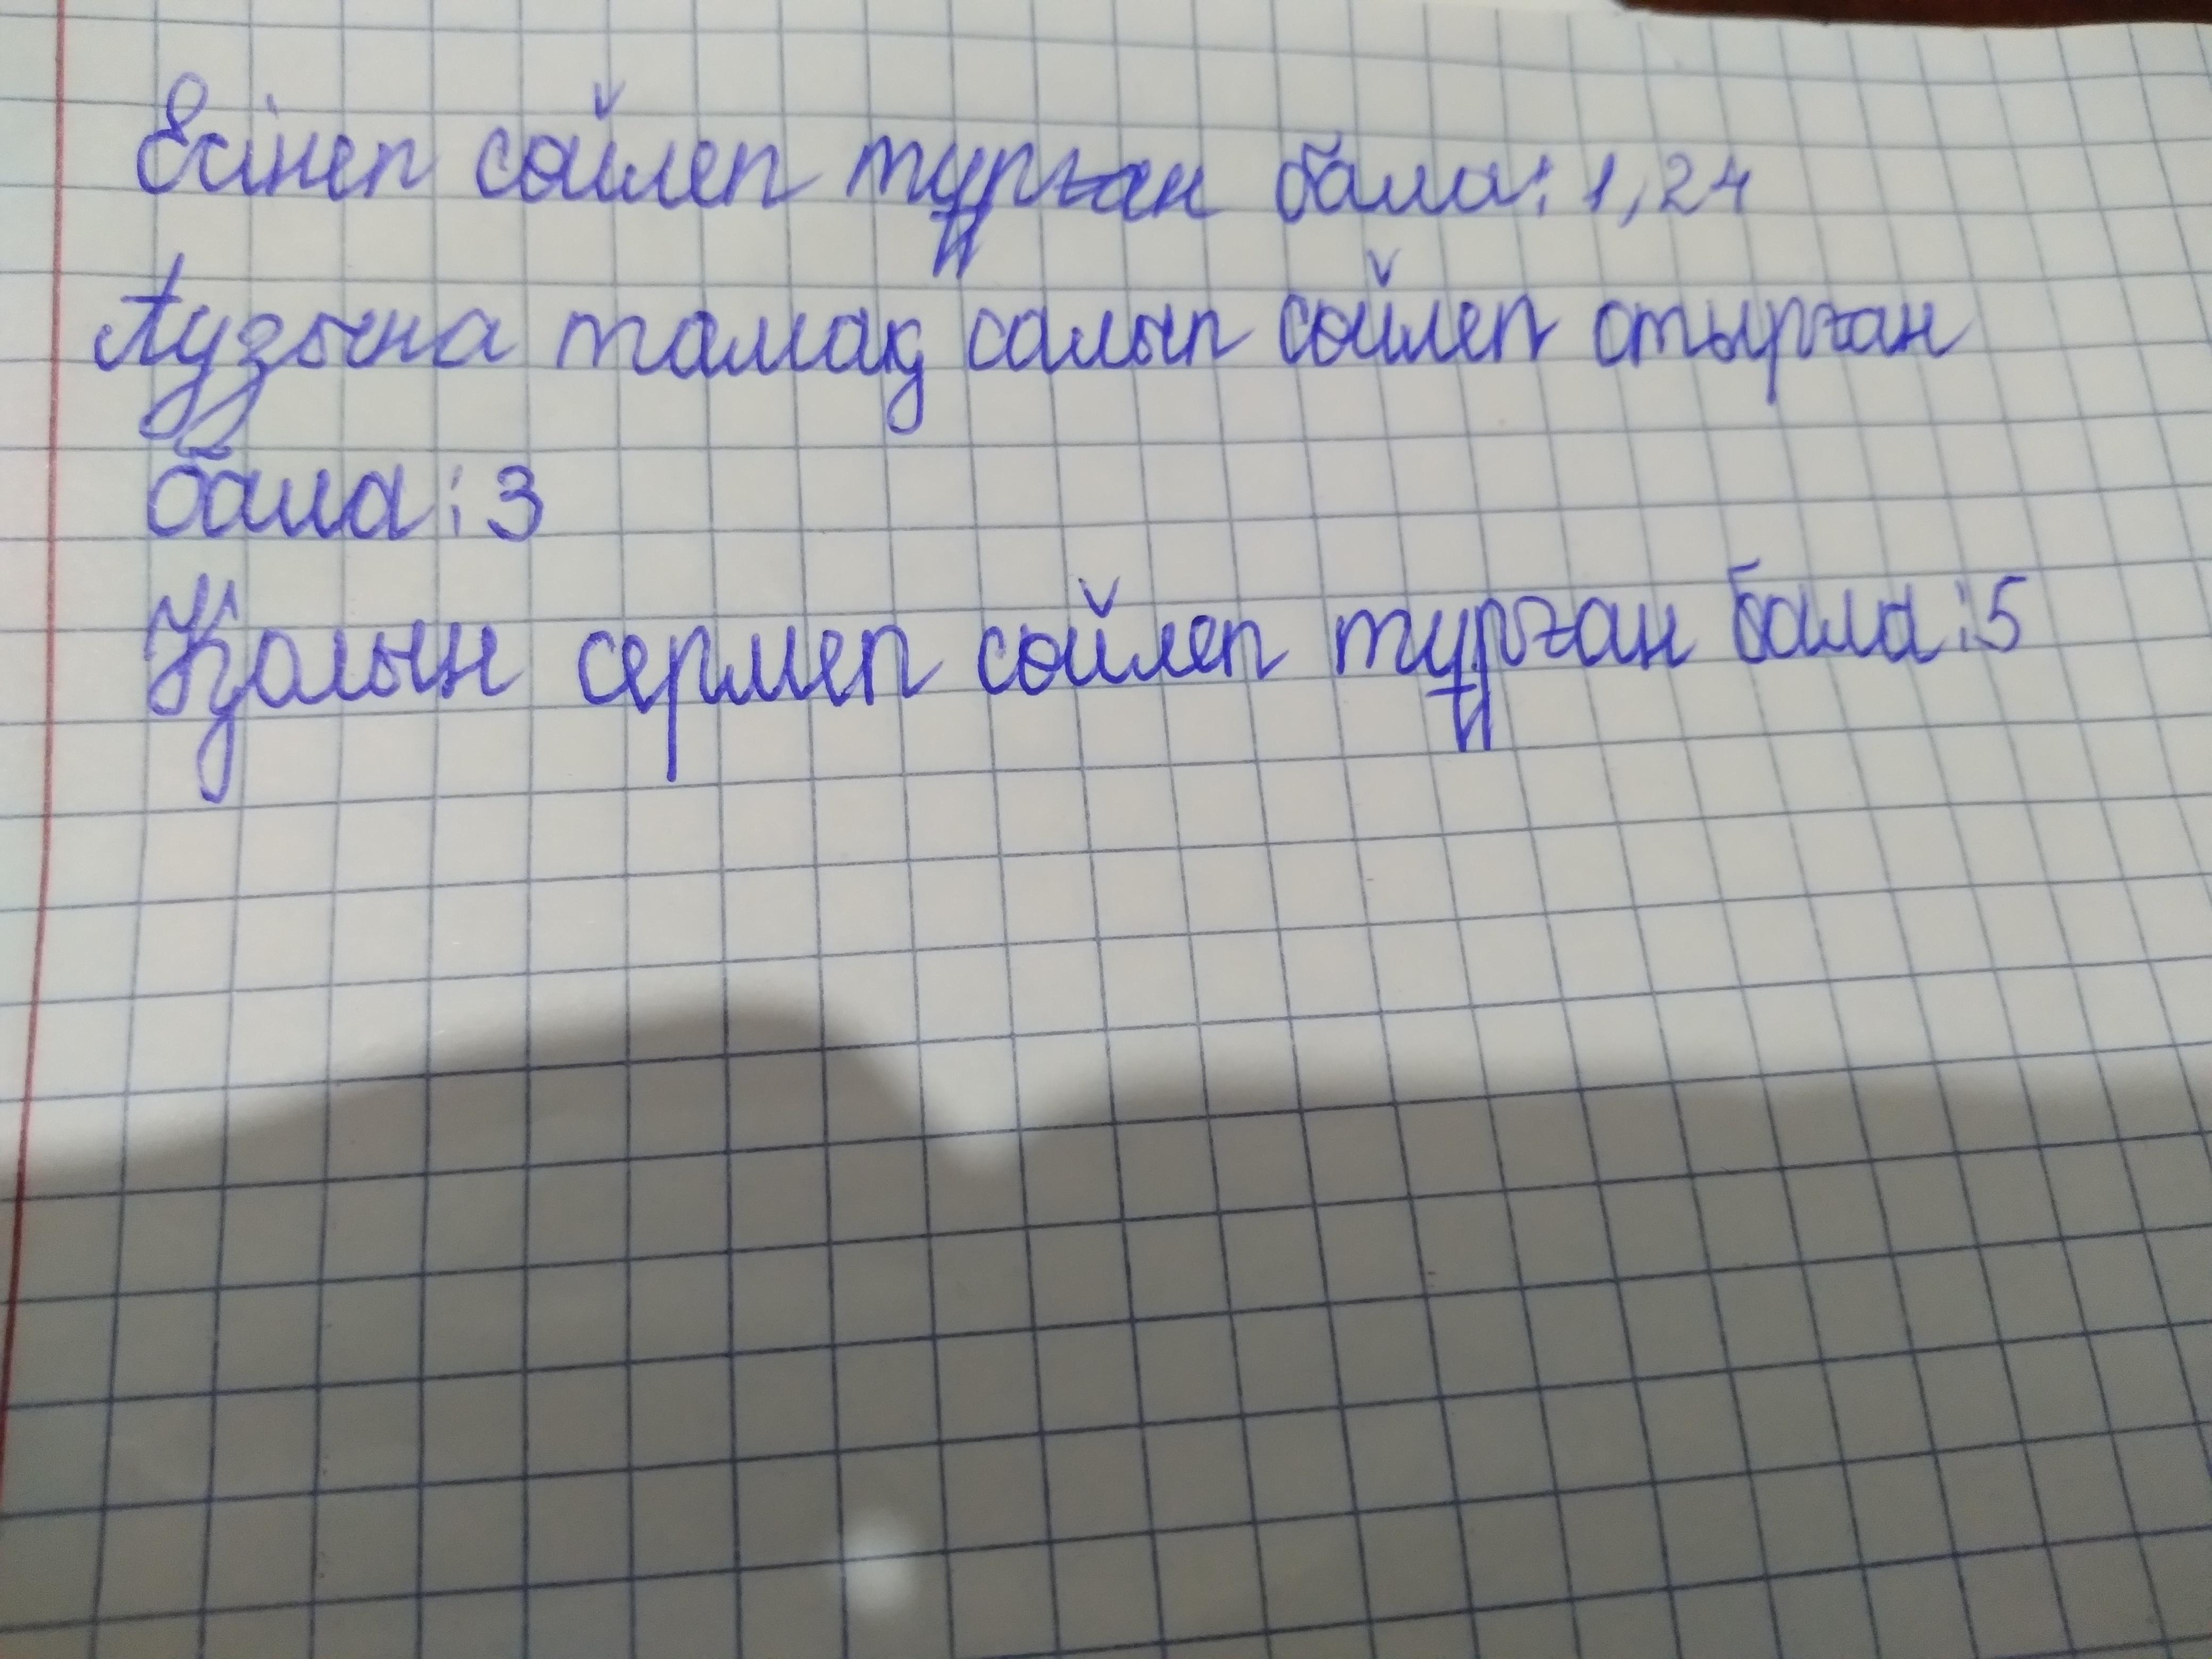 Есінеп сөйлеп тұрған бала: 1,24
Аузына тамақ салып сөйлеп отырған
бала: 3
Қолын сермеп сөйлеп тұрған бала: 5